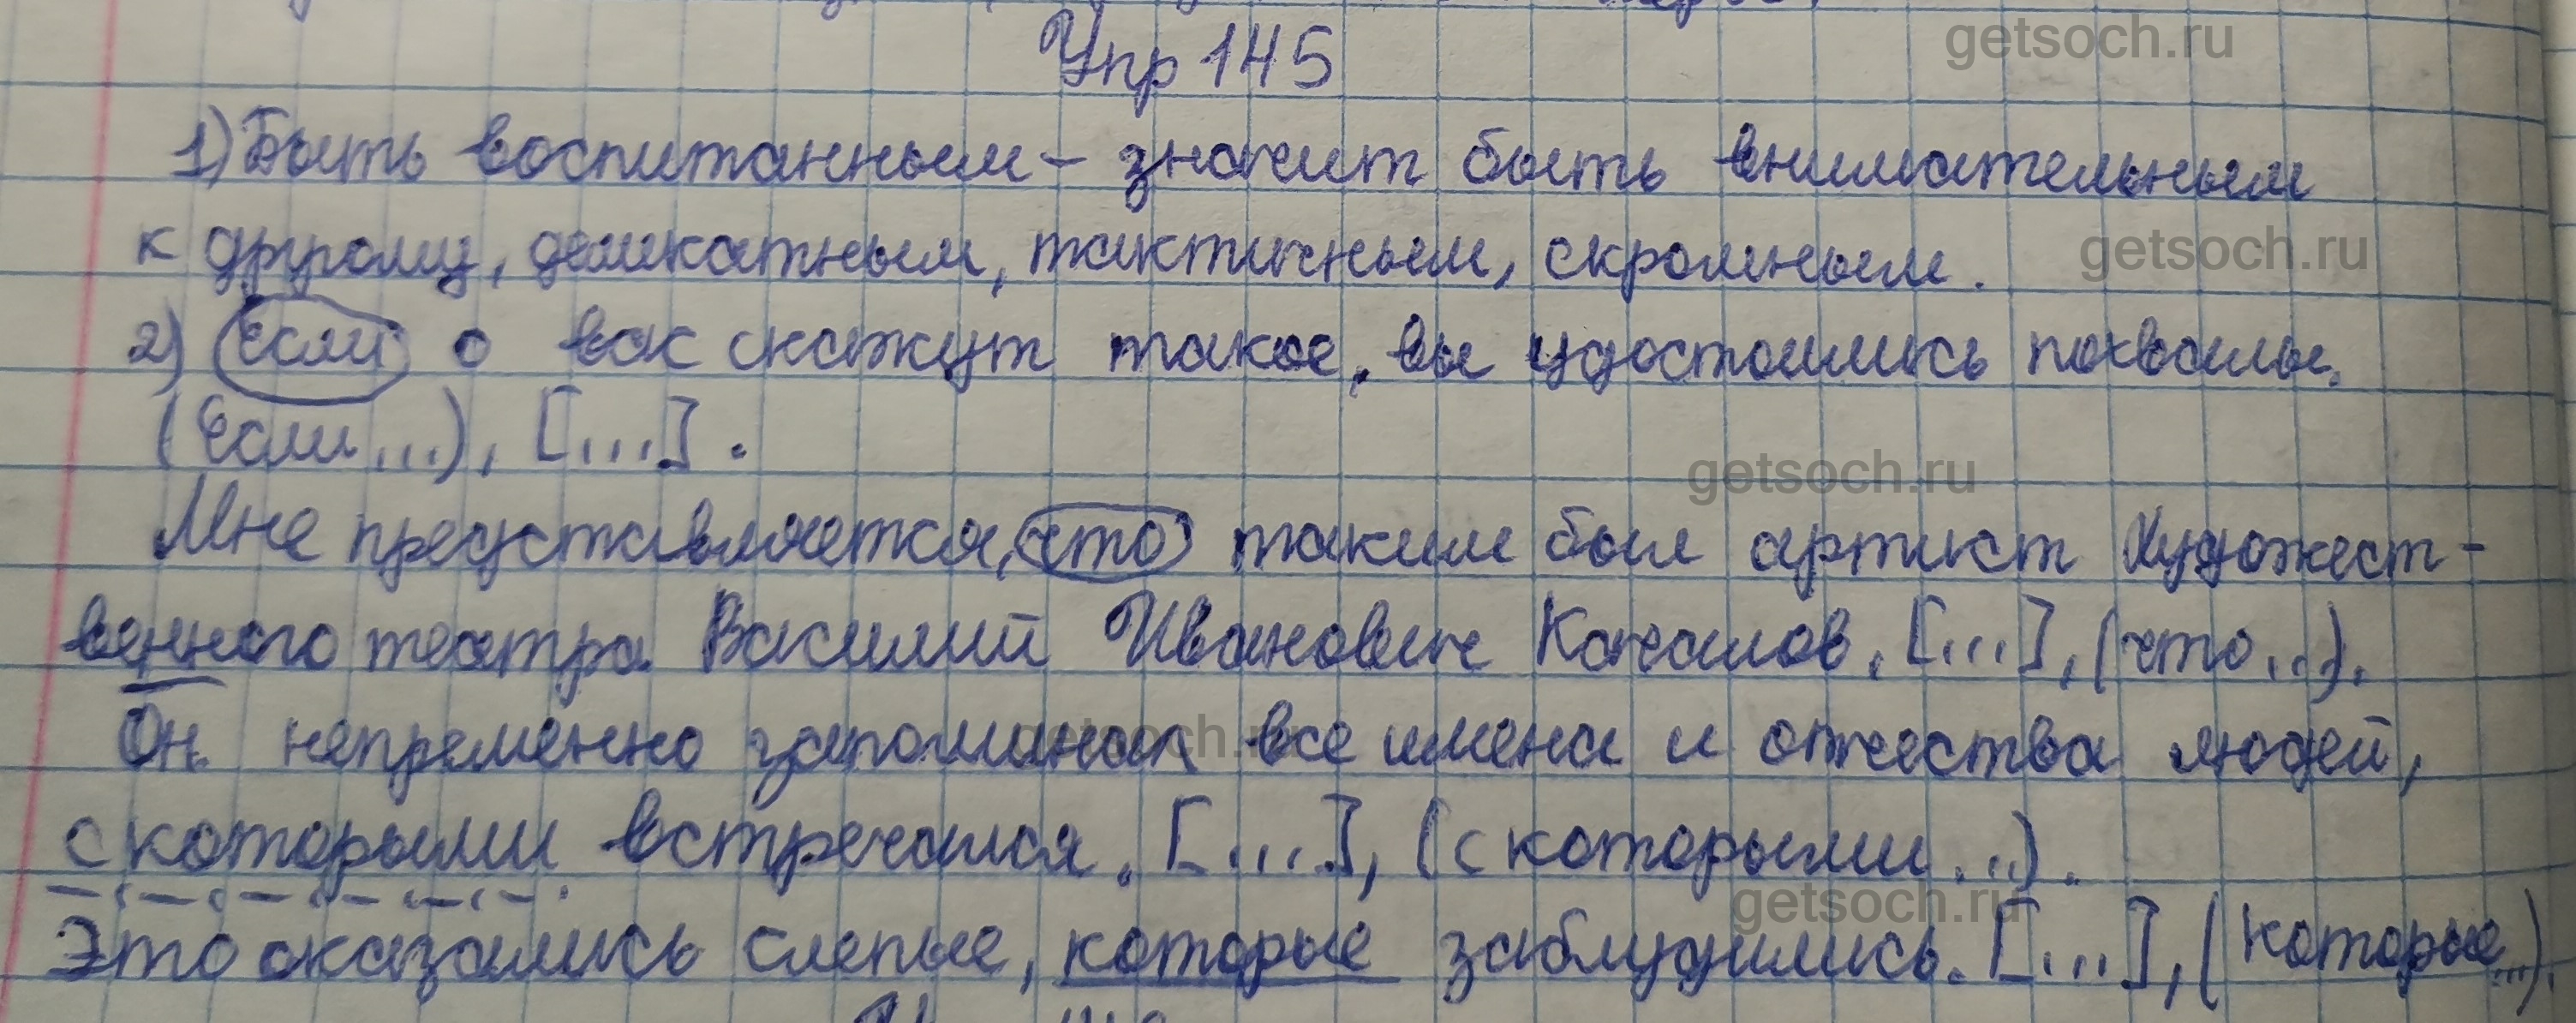 Упр 145
1) Быть воспитанным – значит быть внимательным
к другому, деликатным, тактичным, скромным.
2) Если о вас скажут такое, вы удостоились похвалы.
(Если ...), [...].
Мне представляется, что таким был артист Художест-
венного театра Василий Иванович Качалов. [...], (что ...).
Он непременно запоминал все имена и отчества людей,
с которыми встречался. [...], (с которыми ...).
Это оказались слепые, которые заблудились. [...], (которые ...).
getsoch.ru
getsoch.ru
getsoch.ru
getsoch.ru
getsoch.ru